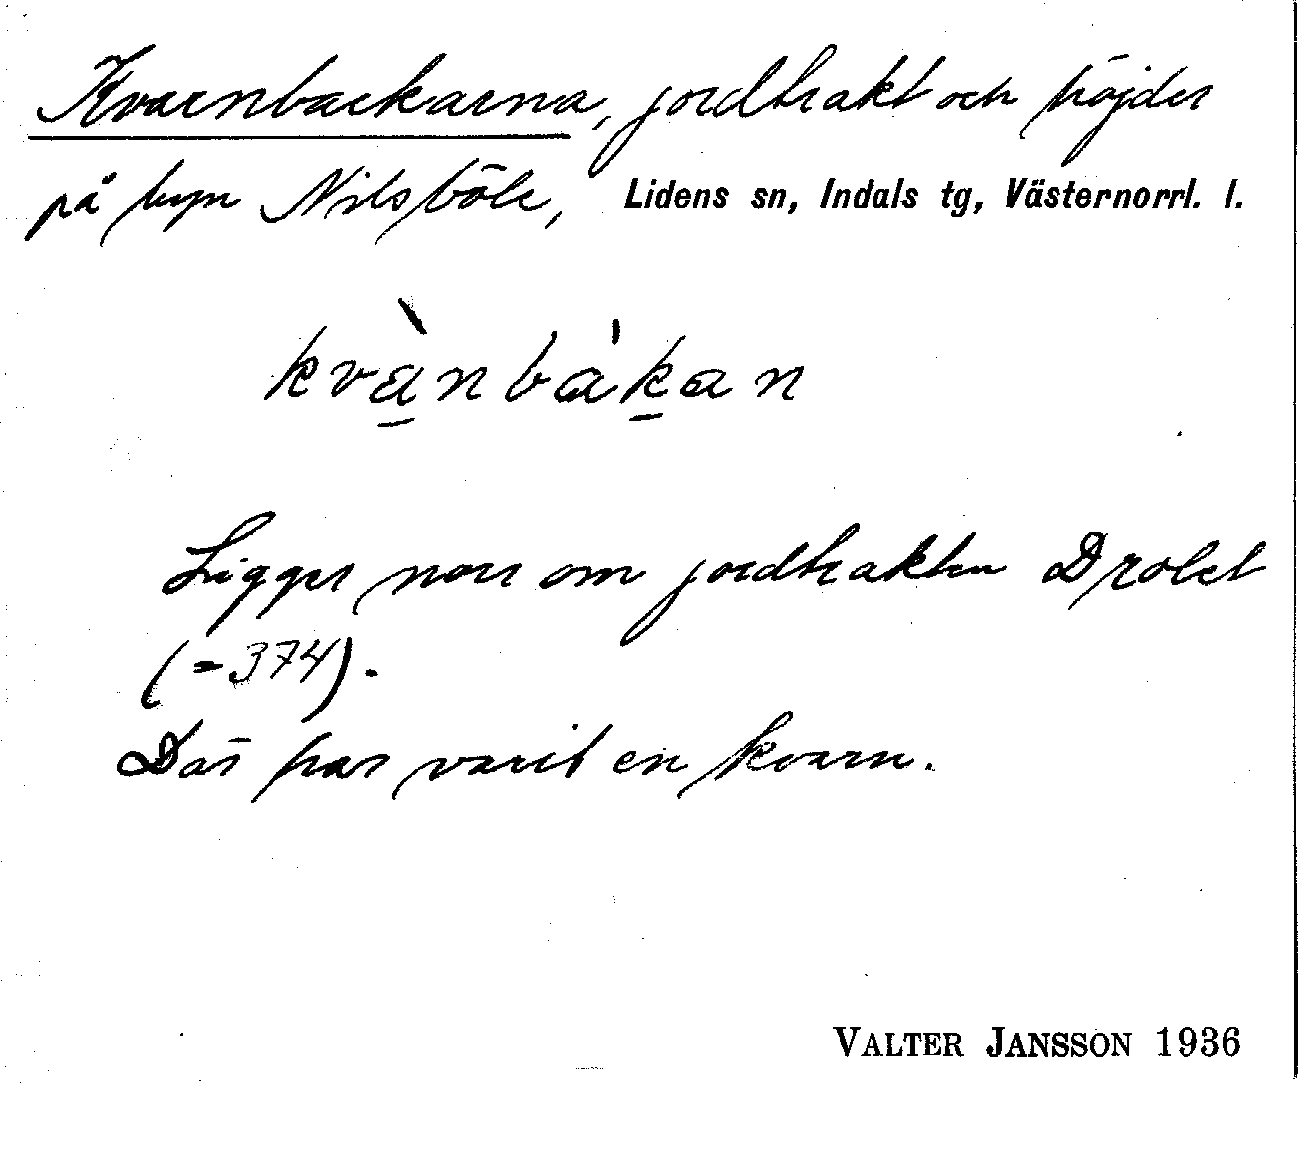 Kvarnbackarna, jordtrakt och höjder
på byn Nilsböle, Lidens sn, Indals tg, Västernorrl. l.
kvànbákan
Ligger norr om jordtrakten Drolet
(= 374).
Där har varit en kvarn.
VALTER JANSSON 1936